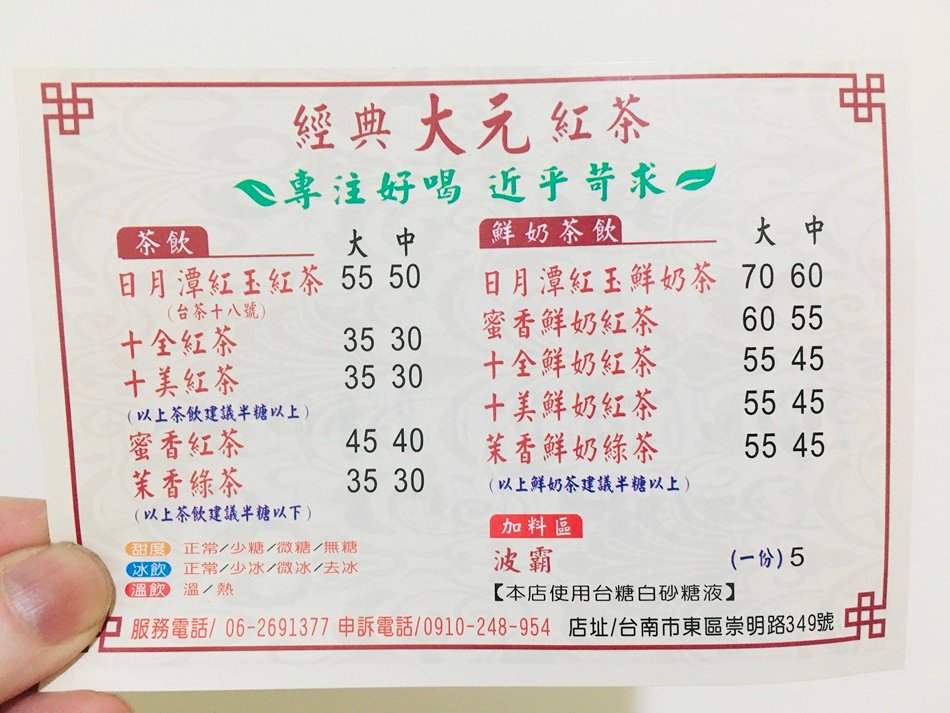 經典大元紅茶
專注好喝 近乎苛求
茶飲 大 中
日月潭紅玉紅茶 55 50
(台茶十八號)
十全紅茶 35 30
十美紅茶 35 30
(以上茶飲建議半糖以上)
蜜香紅茶 45 40
茉香綠茶 35 30
(以上茶飲建議半糖以下)
甜度 正常/少糖/微糖/無糖
冰飲 正常/少冰/微冰/去冰
溫飲 溫/熱
鮮奶茶飲 大 中
日月潭紅玉鮮奶茶 70 60
蜜香鮮奶紅茶 60 55
十全鮮奶紅茶 55 45
十美鮮奶紅茶 55 45
茉香鮮奶綠茶 55 45
(以上鮮奶茶建議半糖以上)
加料區
波霸 (一份) 5
【本店使用台糖白砂糖液】
服務電話/ 06-2691377 申訴電話/0910-248-954 店址/台南市東區崇明路349號